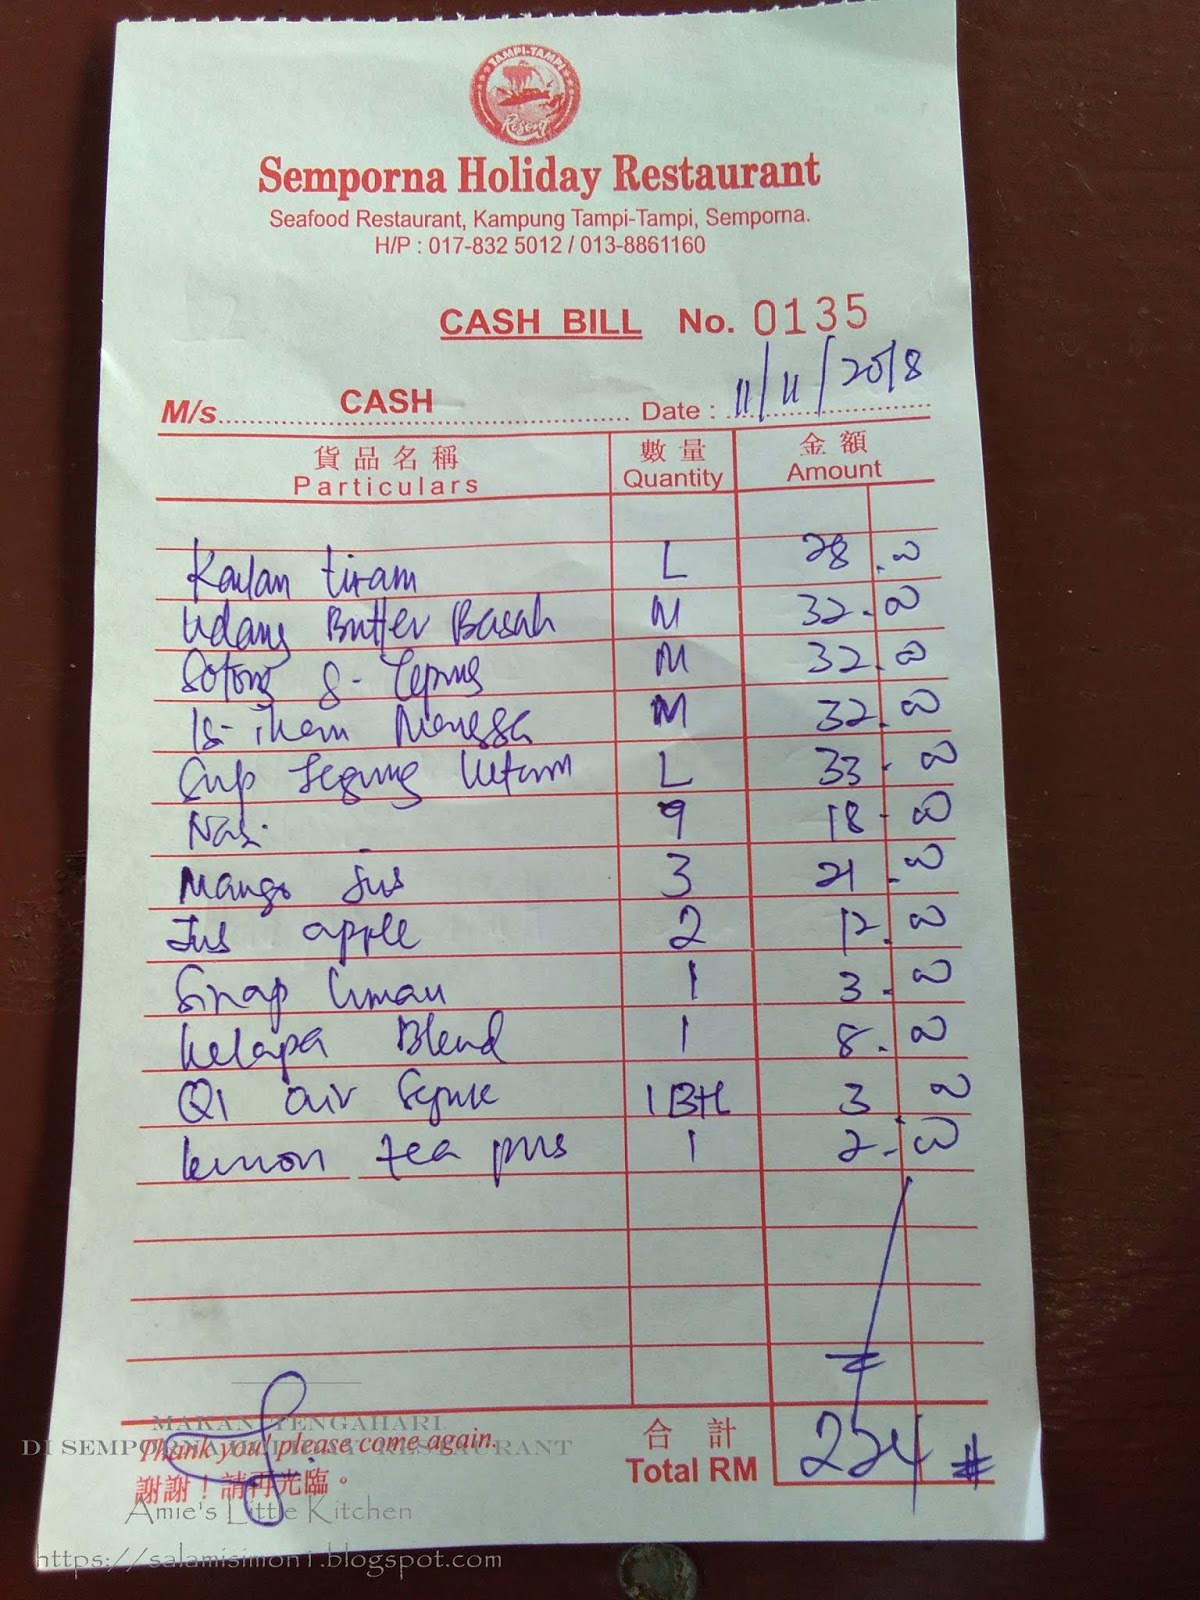 TAMPI-TAMPI
Resort
Semporna Holiday Restaurant
Seafood Restaurant, Kampung Tampi-Tampi, Semporna.
H/P : 017-832 5012 / 013-8861160
CASH BILL No. 0135
M/s. CASH Date : 11/11/2018
貨品名稱 數量 金額
Particulars Quantity Amount
Kailan tiram L 28.00
Udang Butter Basah M 32.00
Sotong G- Tepung M 32.00
Is- ikan Mangga M 32.00
Sup Jagung Ketam L 33.00
Nasi 9 18.00
Mango Jus 3 21.00
Jus apple 2 12.00
Sirap limau 1 3.00
Kelapa Blend 1 8.00
air Sejuk 1 Btl 3.00
lemon tea 1 2.00
合計
Total RM 224 #
Thank you! please come again.
謝謝！請再光臨。
MAKAN TENGAHARI
DI SEMPORNA HOLIDAY RESTAURANT
Amie's Little Kitchen
https://salamisimon1.blogspot.com